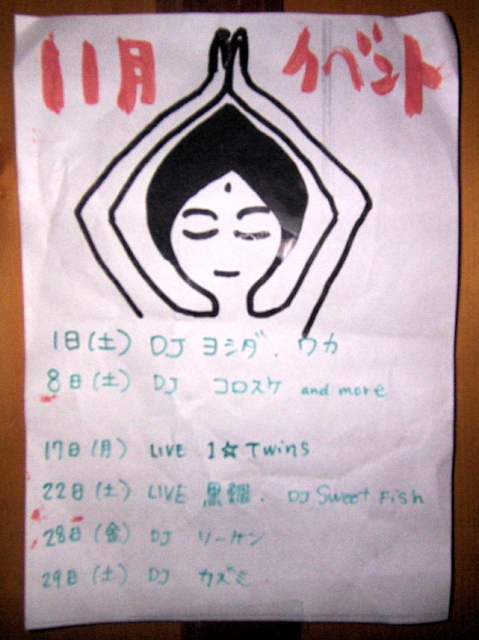 11月 イベント
1日(土) DJ ヨシダ. ワカ
8日(土) DJ コロスケ and more
17日(月) LIVE 1☆Twins
22日(土) LIVE 黒鯛. DJ Sweet Fish
28日(金) DJ リーケン
29日(土) DJ カズミ